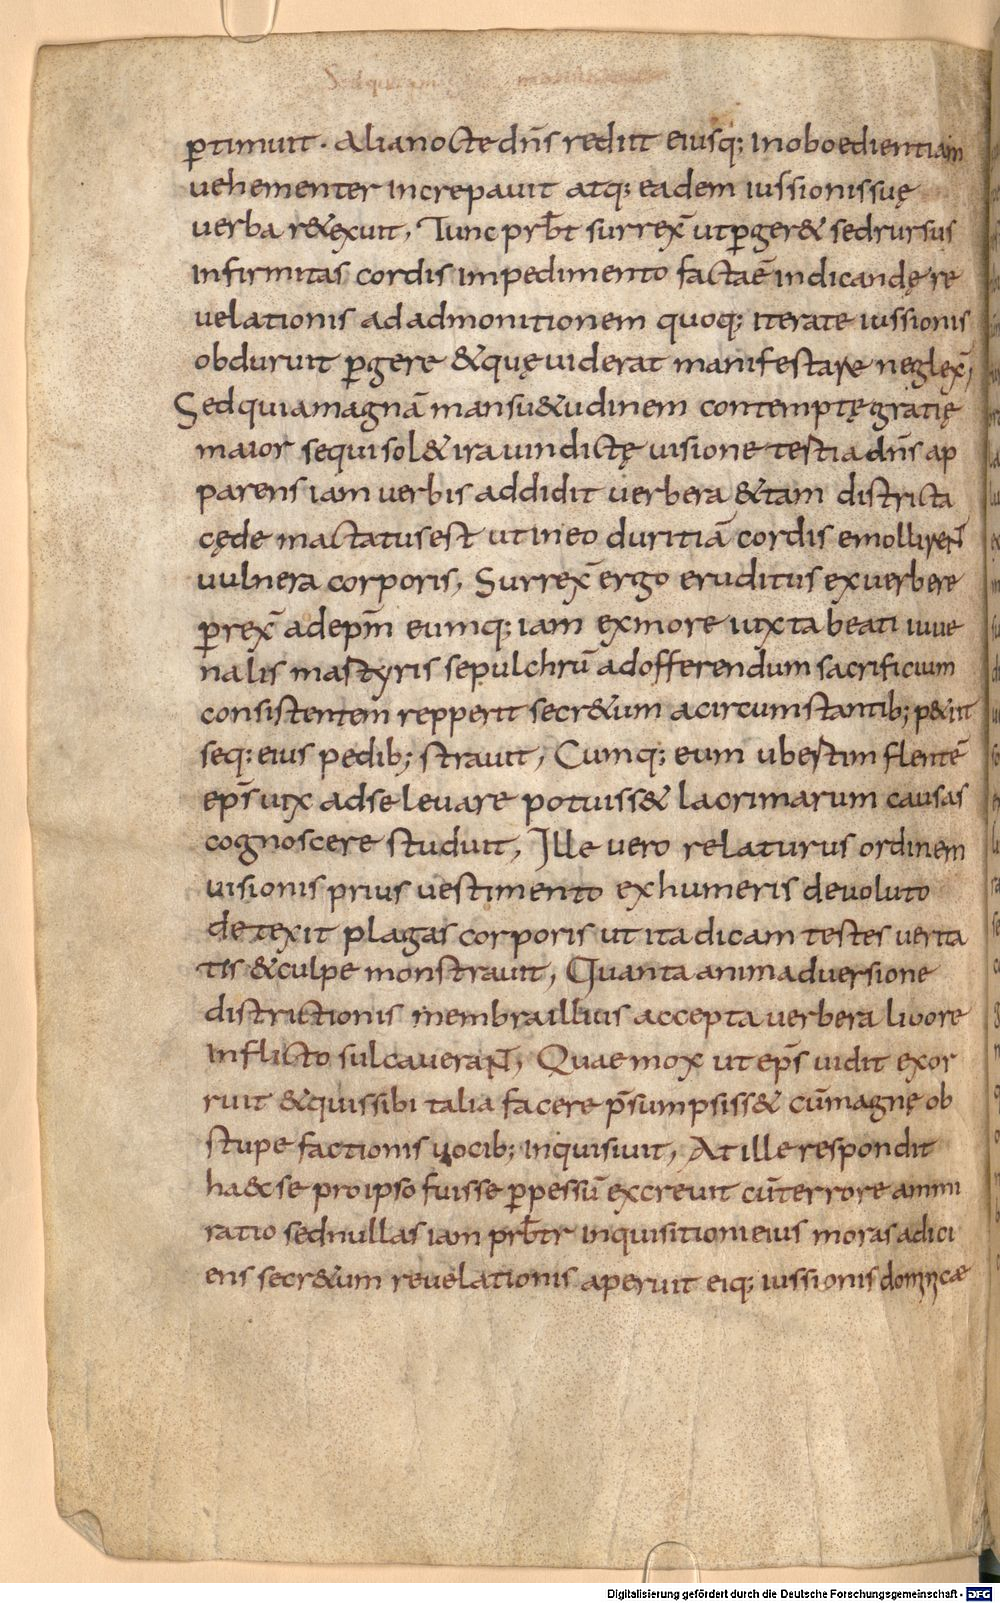 ꝑtimuit. Alia nocte dn̄s rediit eiusq; inoboedientiam
uehementer increpauit atq; eadem iussionis suę
uerba r&exuit, Tunc prb̄t surrex̄ ut ꝑger& sed rursus
infirmitas cordis impedimento facta ē indicandę re
uelationis ad admonitionem quoq; iterate iussionis
obduruit ꝑgere & quę uiderat manifestare neglex̄,
Sed quia magnā mansu&udinem contemptę gratię
maior sequi sol& ira uindictę uisione testia dn̄s ap
parens iam uerbis addidit uerbera & tam districta
cęde mactatus est ut in eo duritiā cordis emollirent
uulnera corporis, Surrex̄ ergo eruditus ex uerbere
ꝑrex̄ ad epm̄ eumq; iam ex more iuxta beati iuue
nalis martyris sepulchrū ad offerendum sacrificium
consistentem repperit secr&um a circumstantib; p&iit
seq; eius pedib; strauit, Cumq; eum ubertim flentē
eps̄ uix ad se leuare potuiss& lacrimarum causas
cognoscere studuit, Ille uero relaturus ordinem
uisionis prius uestimento ex humeris deuoluto
detexit plagas corporis ut ita dicam testes uerita
tis & culpe monstrauit, Quanta animaduersione
districtionis membra illius accepta uerbera liuore
inflicto sulcauerant, Quae mox ut eps̄ uidit exor
ruit & quis sibi talia facere p̄sumpsiss& cū magnę ob
stupefactionis uocib; inquisiuit, At ille respondit
haec se pro ipso fuisse ꝑpessū excreuit cū terrore ammi
ratio sed nullas iam prb̄tr inquisitioni eius moras adici
ens secr&um reuelationis aperuit eiq; iussionis dominicæ
Digitalisierung gefördert durch die Deutsche Forschungsgemeinschaft - DFG